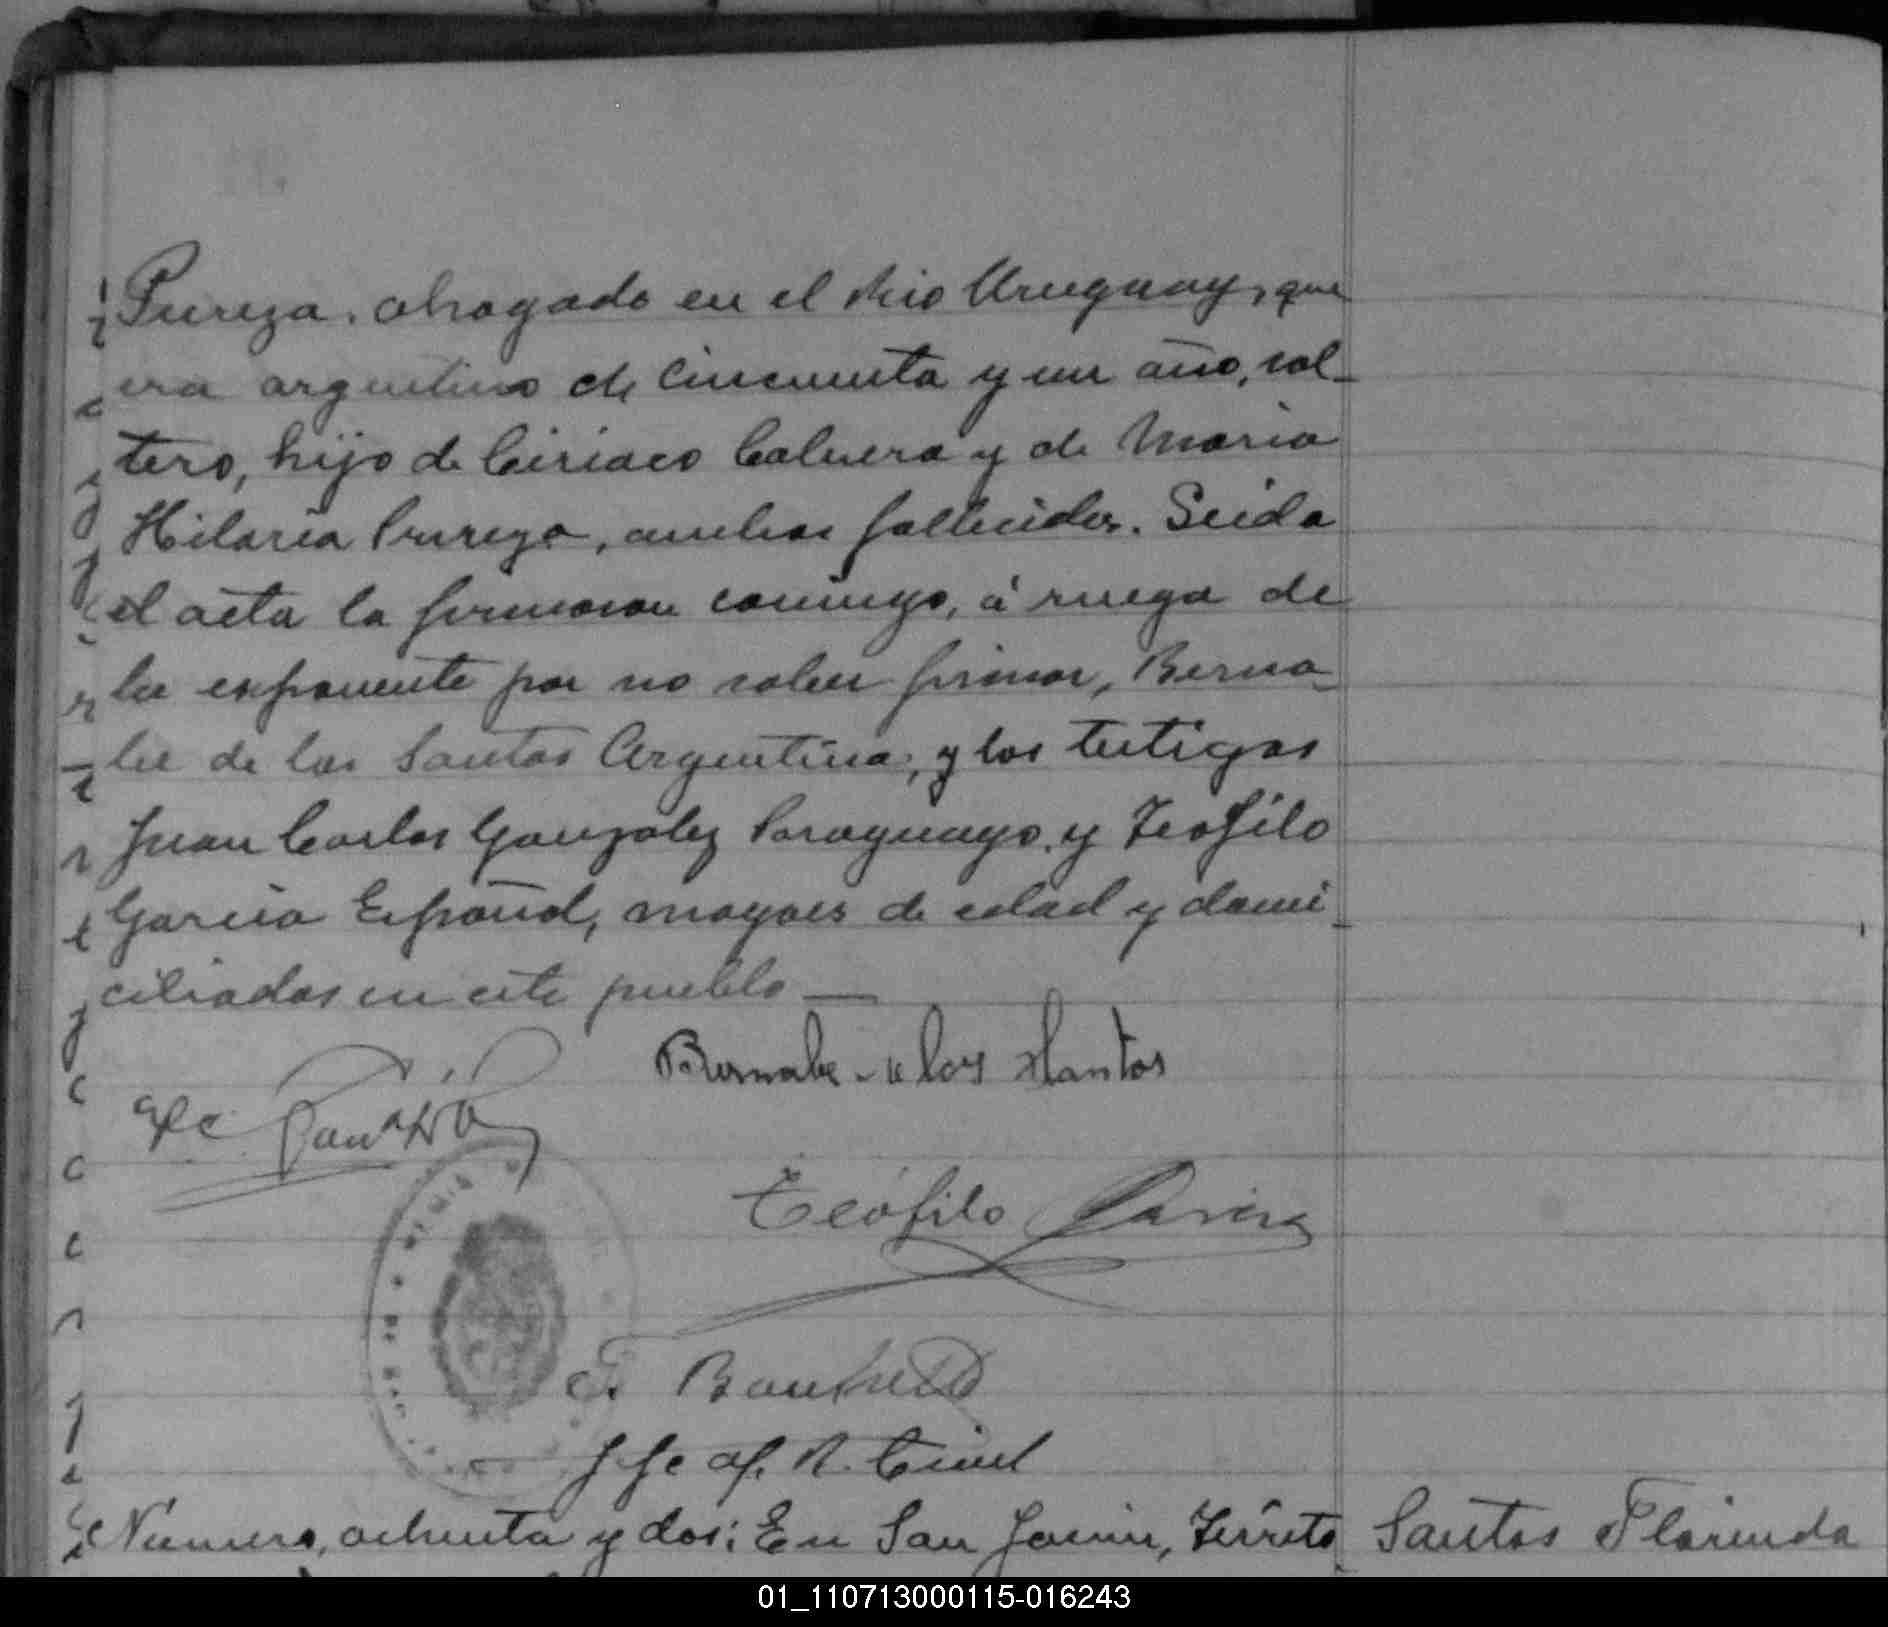 Pureza, ahogado en el Rio Uruguay, que
era argentino de cincuenta y un año, sol-
tero, hijo de Ciriaco Cabrera y de Maria
Hilaria Pureza, ambos fallecidos. Leida
el acta la firmaron conmigo, á ruego de
la exponente por no saber firmar, Berna-
be de los Santos Argentino, y los testigos
Juan Carlos Gonzalez Paraguayo, y Teofilo
Garcia Español, mayores de edad y domi-
ciliados en este pueblo —
Bernabe de los Santos
J C Gonzalez
Teófilo Garcia
Jefe del R. Civil
Número, ochenta y dos; En San Javier, Territo-
Santos Florinda
01_110713000115-016243